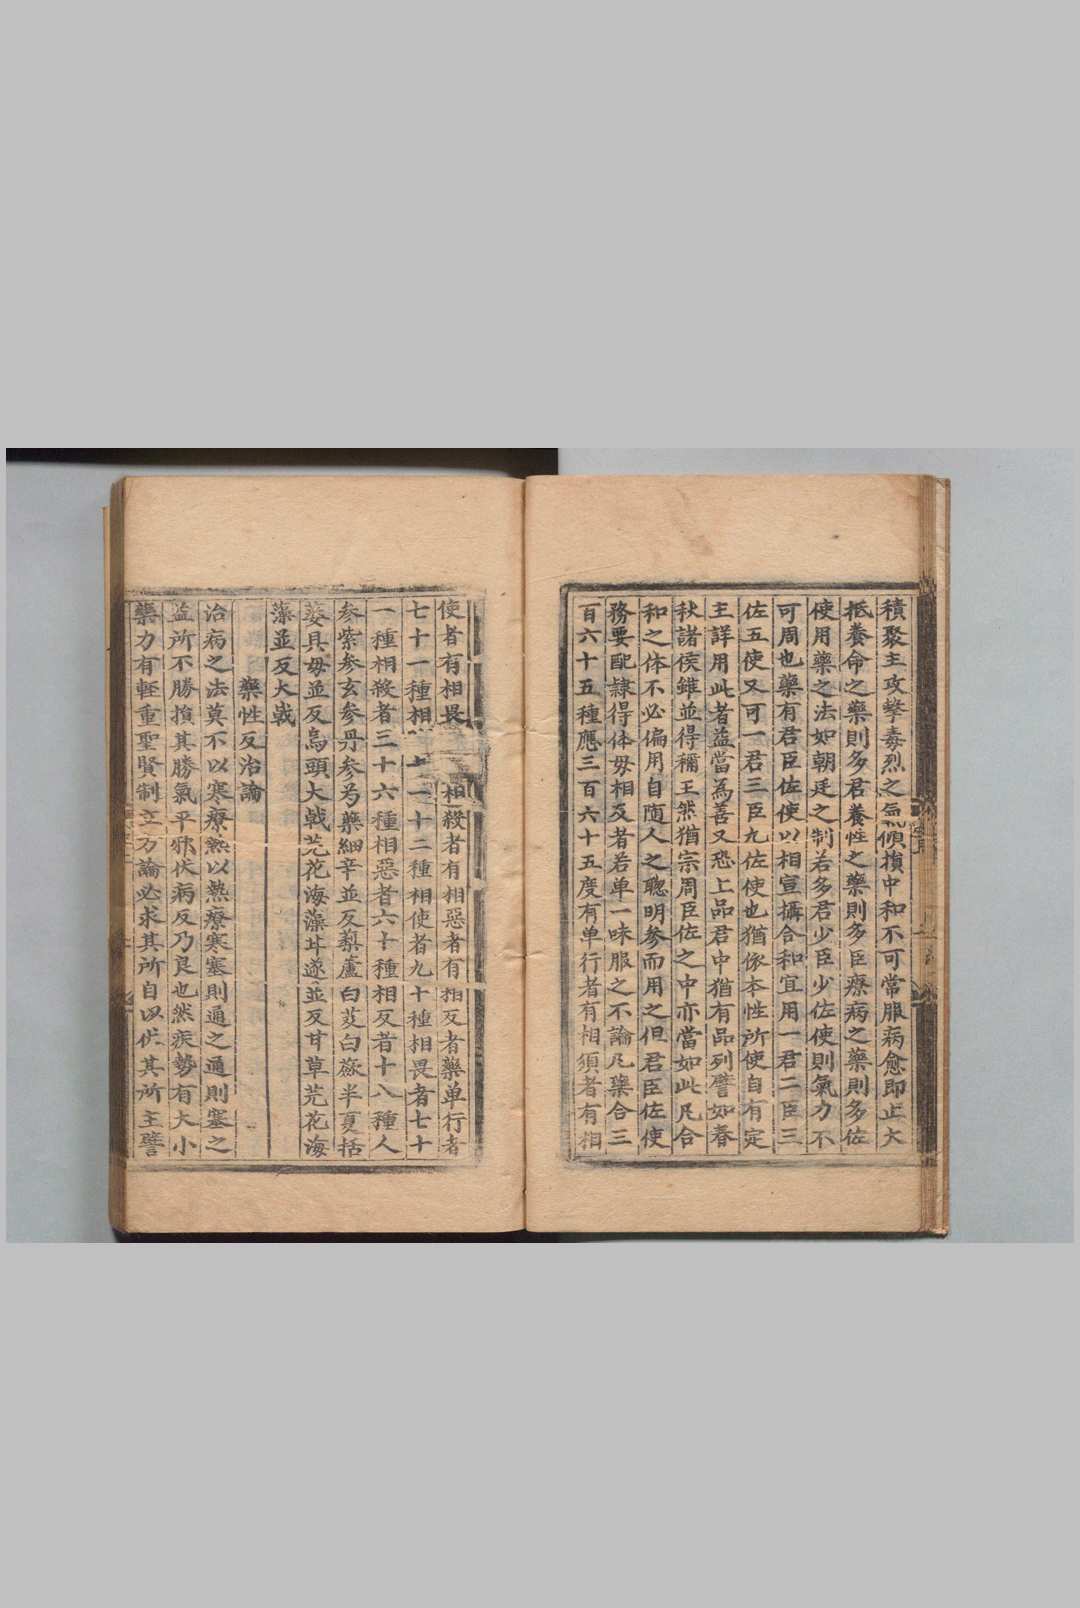 積聚主攻擊毒烈之氣傾損中和不可常服病愈即止大
抵養命之藥則多君養性之藥則多臣療病之藥則多佐
使用藥之法如朝廷之制若多君少臣少佐使則氣力不
可周也藥有君臣佐使以相宣攝合和宜用一君二臣三
佐五使又可一君三臣九佐使也猶依本性所使自有定
主詳用此者益當為善又恐上品君中猶有品列譬如春
秋諸侯雖並得稱王然猶宗周臣佐之中亦當如此凡合
和之体不必偏用自随人之聰明參而用之但君臣佐使
務要配隷得体毋相反者若单一味服之不論凡藥合三
百六十五種應三百六十五度有单行者有相須者有相
使者有相畏 相殺者有相惡者有相反者藥单行者
七十一種相 十二種相使者九十種相畏者七十
一種相殺者三十六種相惡者六十種相反者十八種人
參紫參玄參丹參芍藥細辛並反藜蘆白芨白蘞半夏括
蔞具毋並反烏頭大戟芫花海藻甘遂並反甘草芫花海
藻並反大戟
藥性反治論
治病之法莫不以寒療熱以熱療寒塞則通之通則塞之
益所不勝損其勝氣平邪伏病反乃良也然疾勢有大小
藥力有輕重聖賢制立方論必求其所自以伏其所主譬